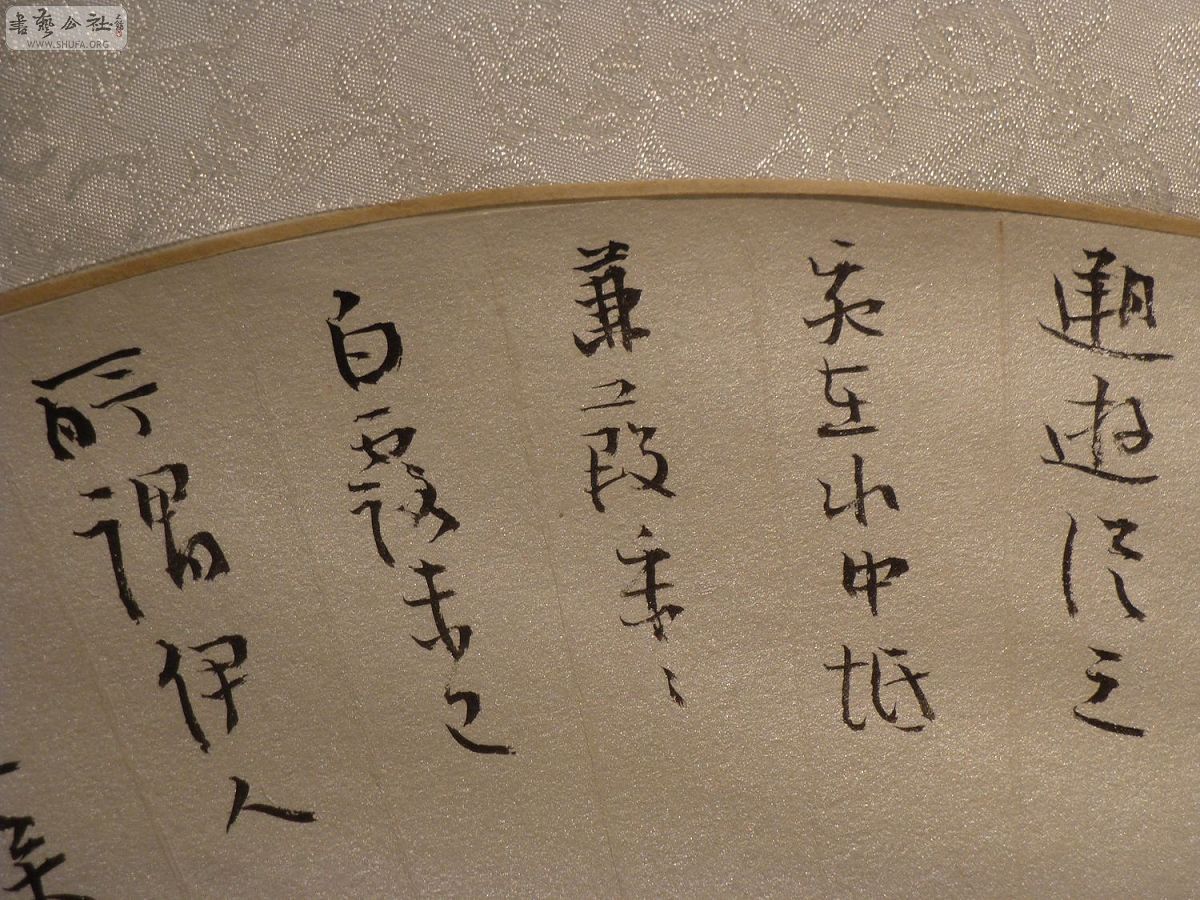 書藝公社
WWW.SHUFA.ORG
遡遊從之
宛在水中坻
蒹葭采〻
白露未已
所謂伊人